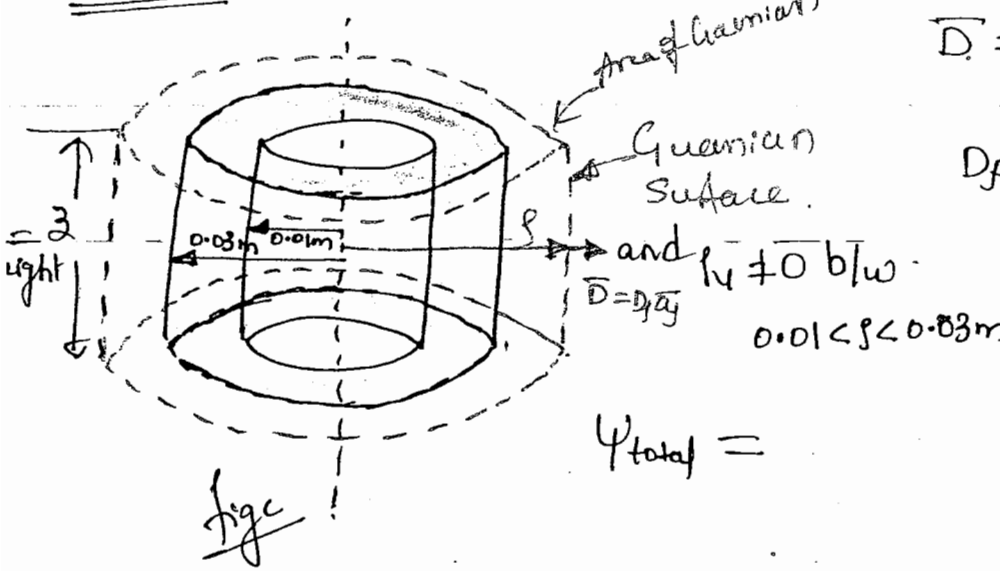 Area of Gaurnian
D̅ =
Guernian
Surface.
Dρ
= 3
ight
0.03m
0.01m
ρ
and ρv ≠ 0 b/w
D̅ = Dρ a̅ρ
0.01 < ρ < 0.03m
Ψtotal =
fig c